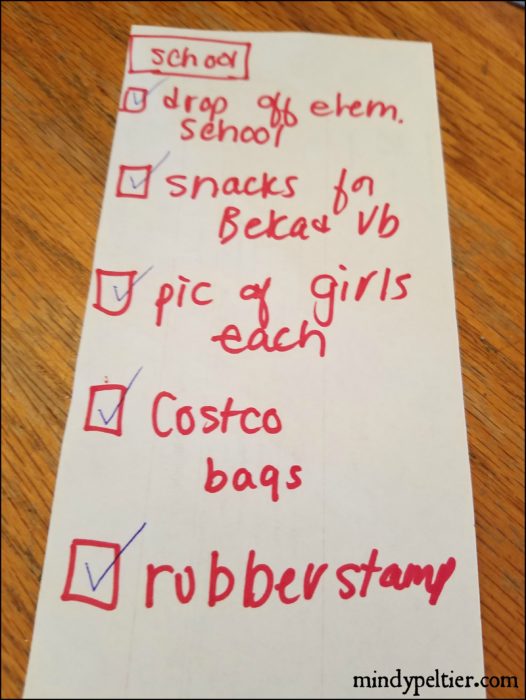 school
drop off elem.
school
snacks for
Beka & Vb
pic of girls
each
Costco
bags
rubberstamp
mindypeltier.com